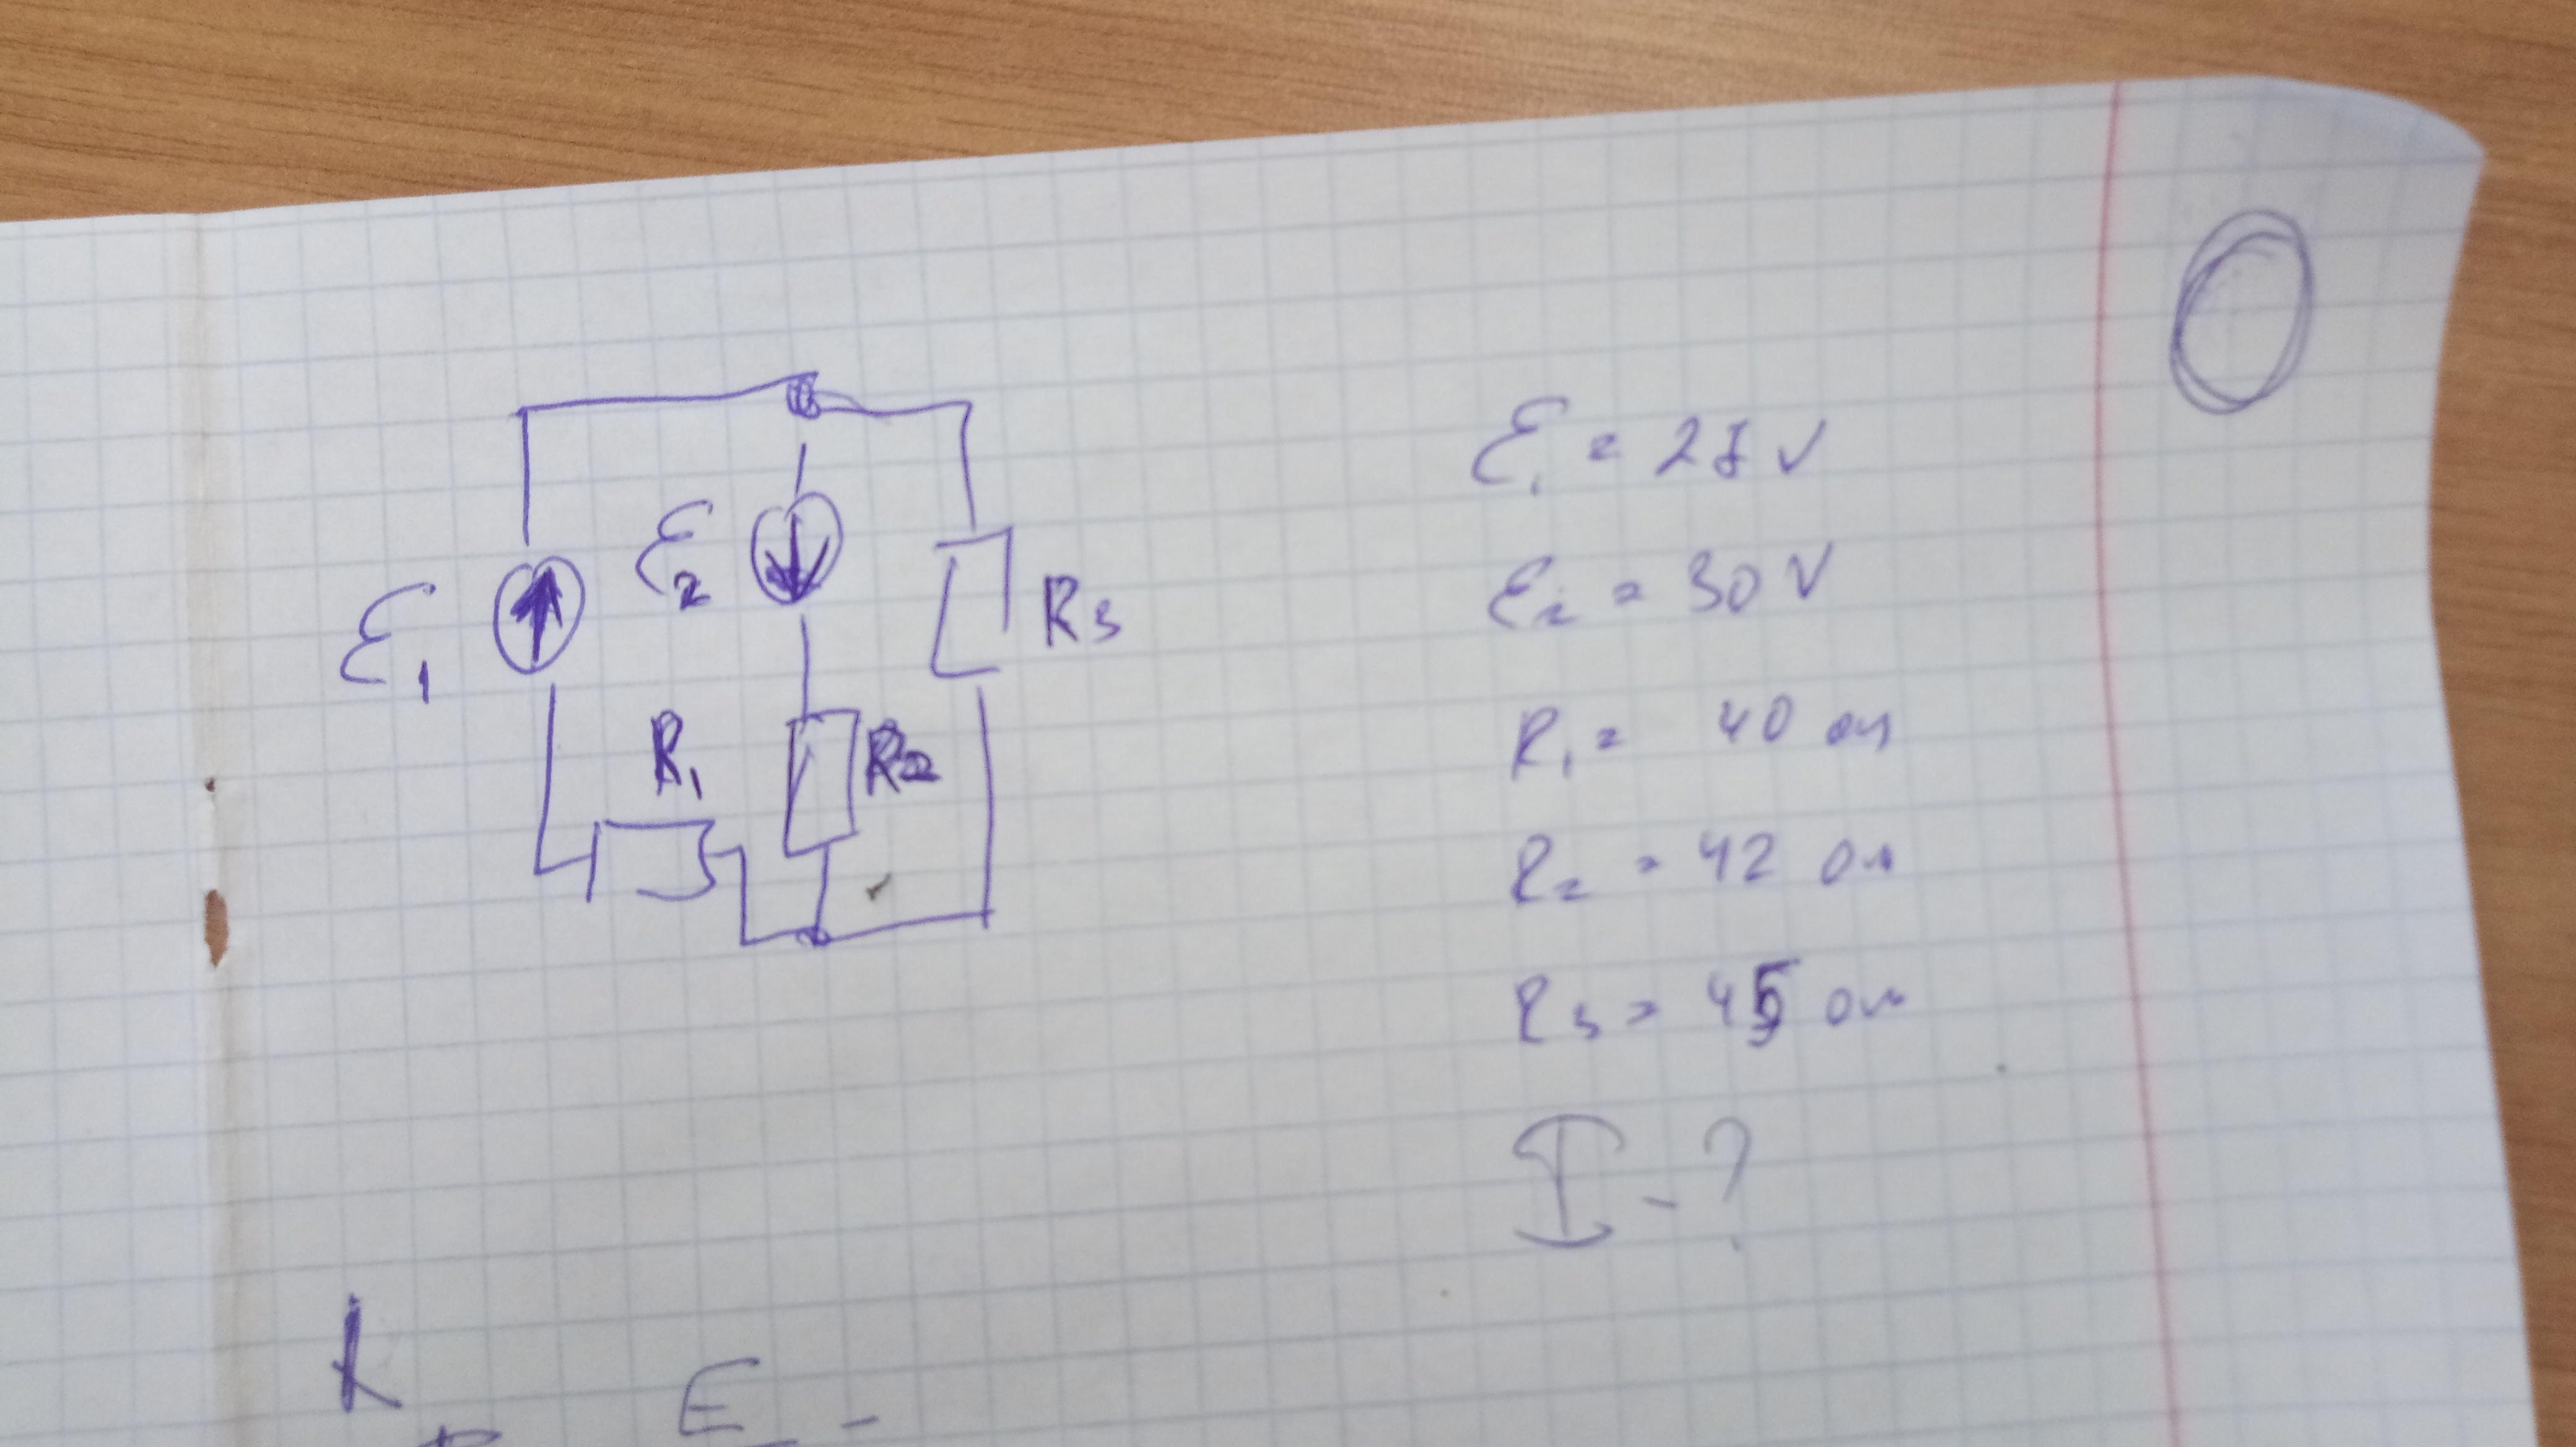 ℰ₁
ℰ₂
R₃
R₁
R₂
ℰ₂ = 30 V
R₁ = 40 ом
R₂ = 42 ом
R₃ = 45 ом
I - ?
E -